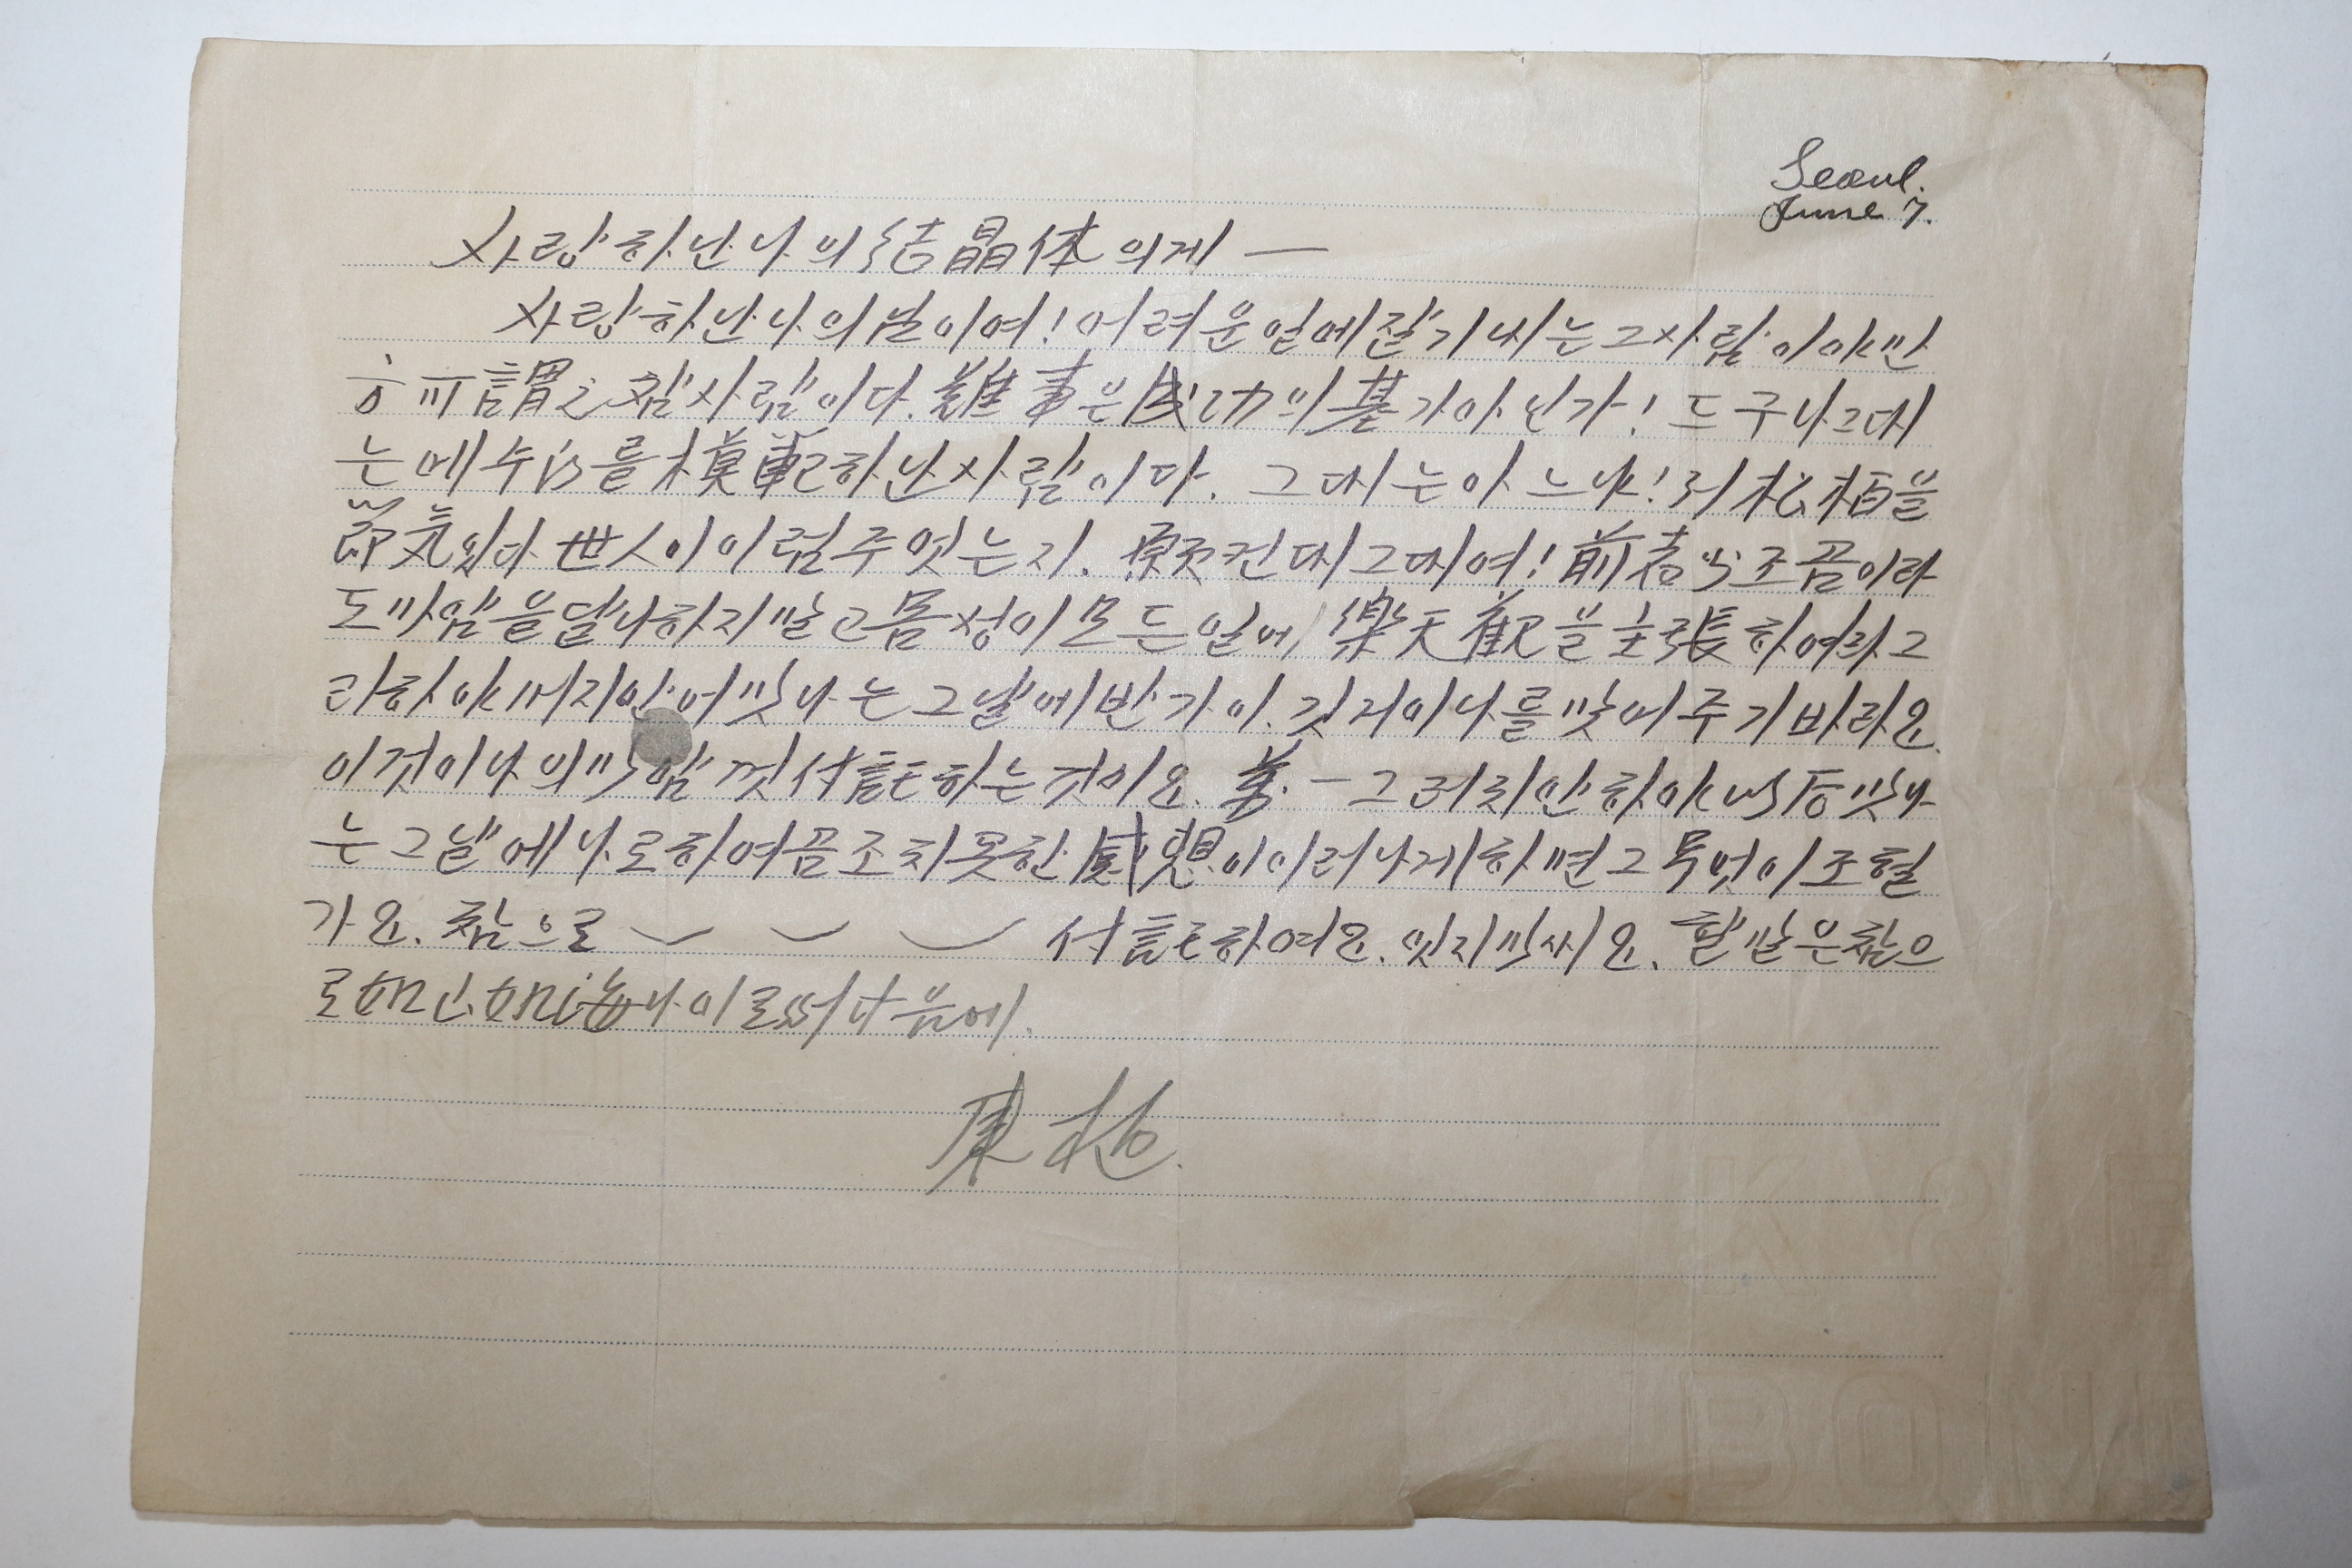 Seoul.
June 7.
사랑하난 나의 結晶体의게 —
사랑하난 나의 벗이여! 어려운 일에 잘 기내는 그 사람이야만
可謂之 참사람이다. 難事은 成功의 基가 아닌가! 드구나 그대
는 예수 를 模範하난 사람이다. 그대는 아느냐! 저 松栢을
節気 잇다 世人이 이럼 주엇는지. 願컨대 그대여! 前者 조곰이라
도 마암을 달니하지 말고 몸성이 모든 일에 樂天觀을 主張하여라 그
리하야 머지안어 맛나는 그날에 반가이 깃거이 나를 맛어주기 바라오.
이것이 나의 마암껏 付託하는 것이요. 萬一 그러치 안하야 맛나
는 그날에 나로 하여곰 조치 못한 感想이 이러나게 하면 그 무엇이 조흘
가요. 참으로 付託하여요. 잇지 마시요. 할 말은 참으
로 如山如海나 이로써